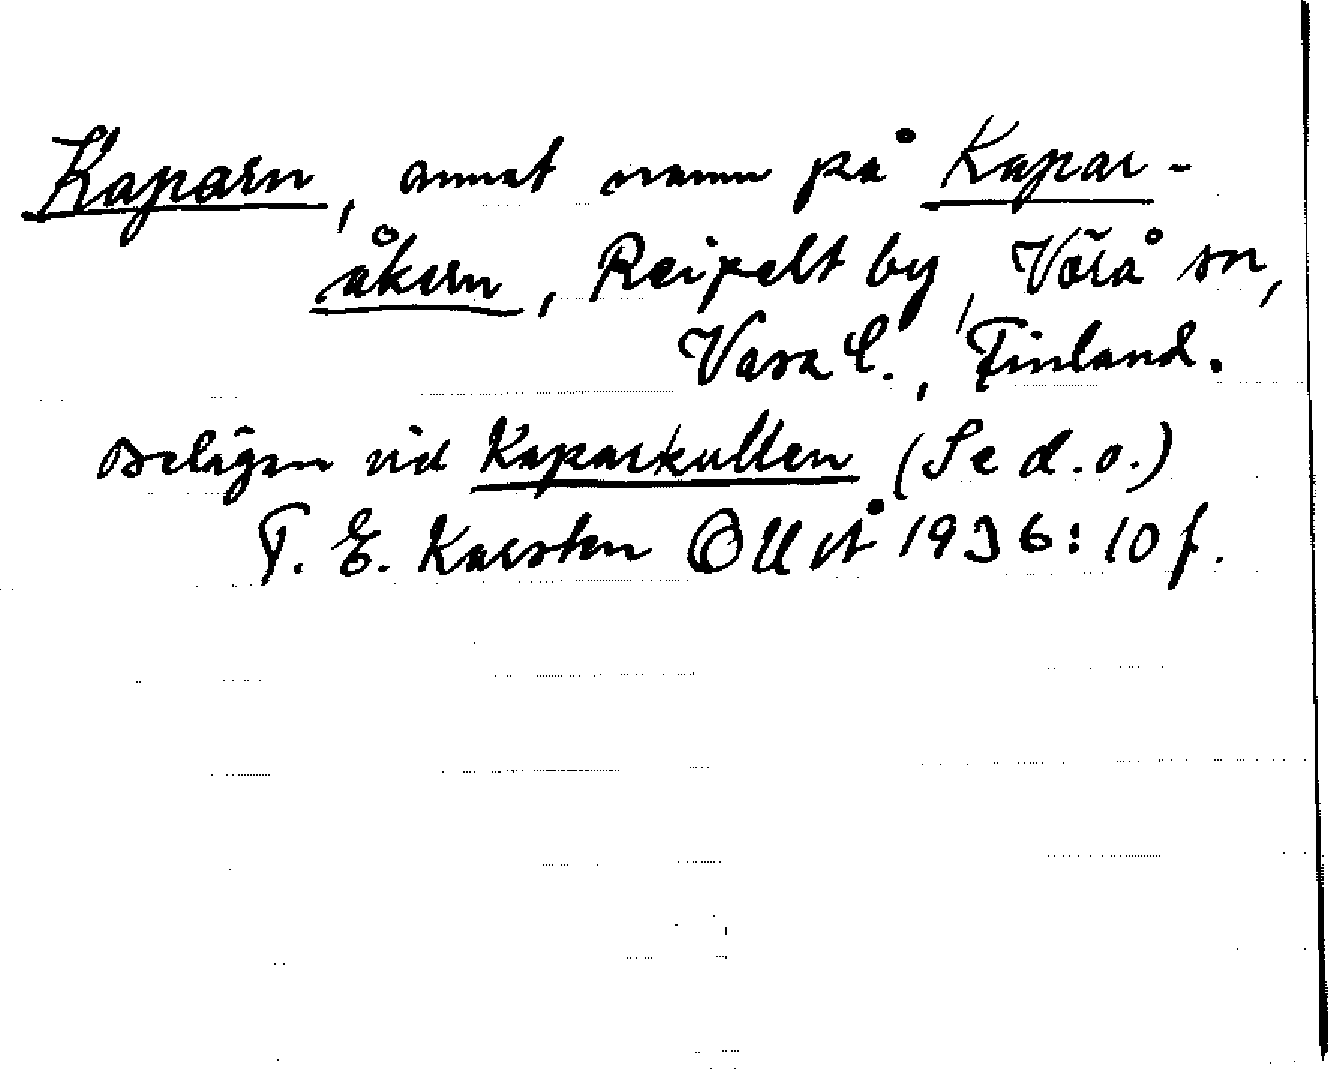 Kaparn, annat namn på Kapar-
åkern, Reipelt by, Vörå sn,
Vasa l., Finland.
Belägen vid Kaparkullen (Se d.o.)
T. E. Karsten OUÅ 1936: 10 f.